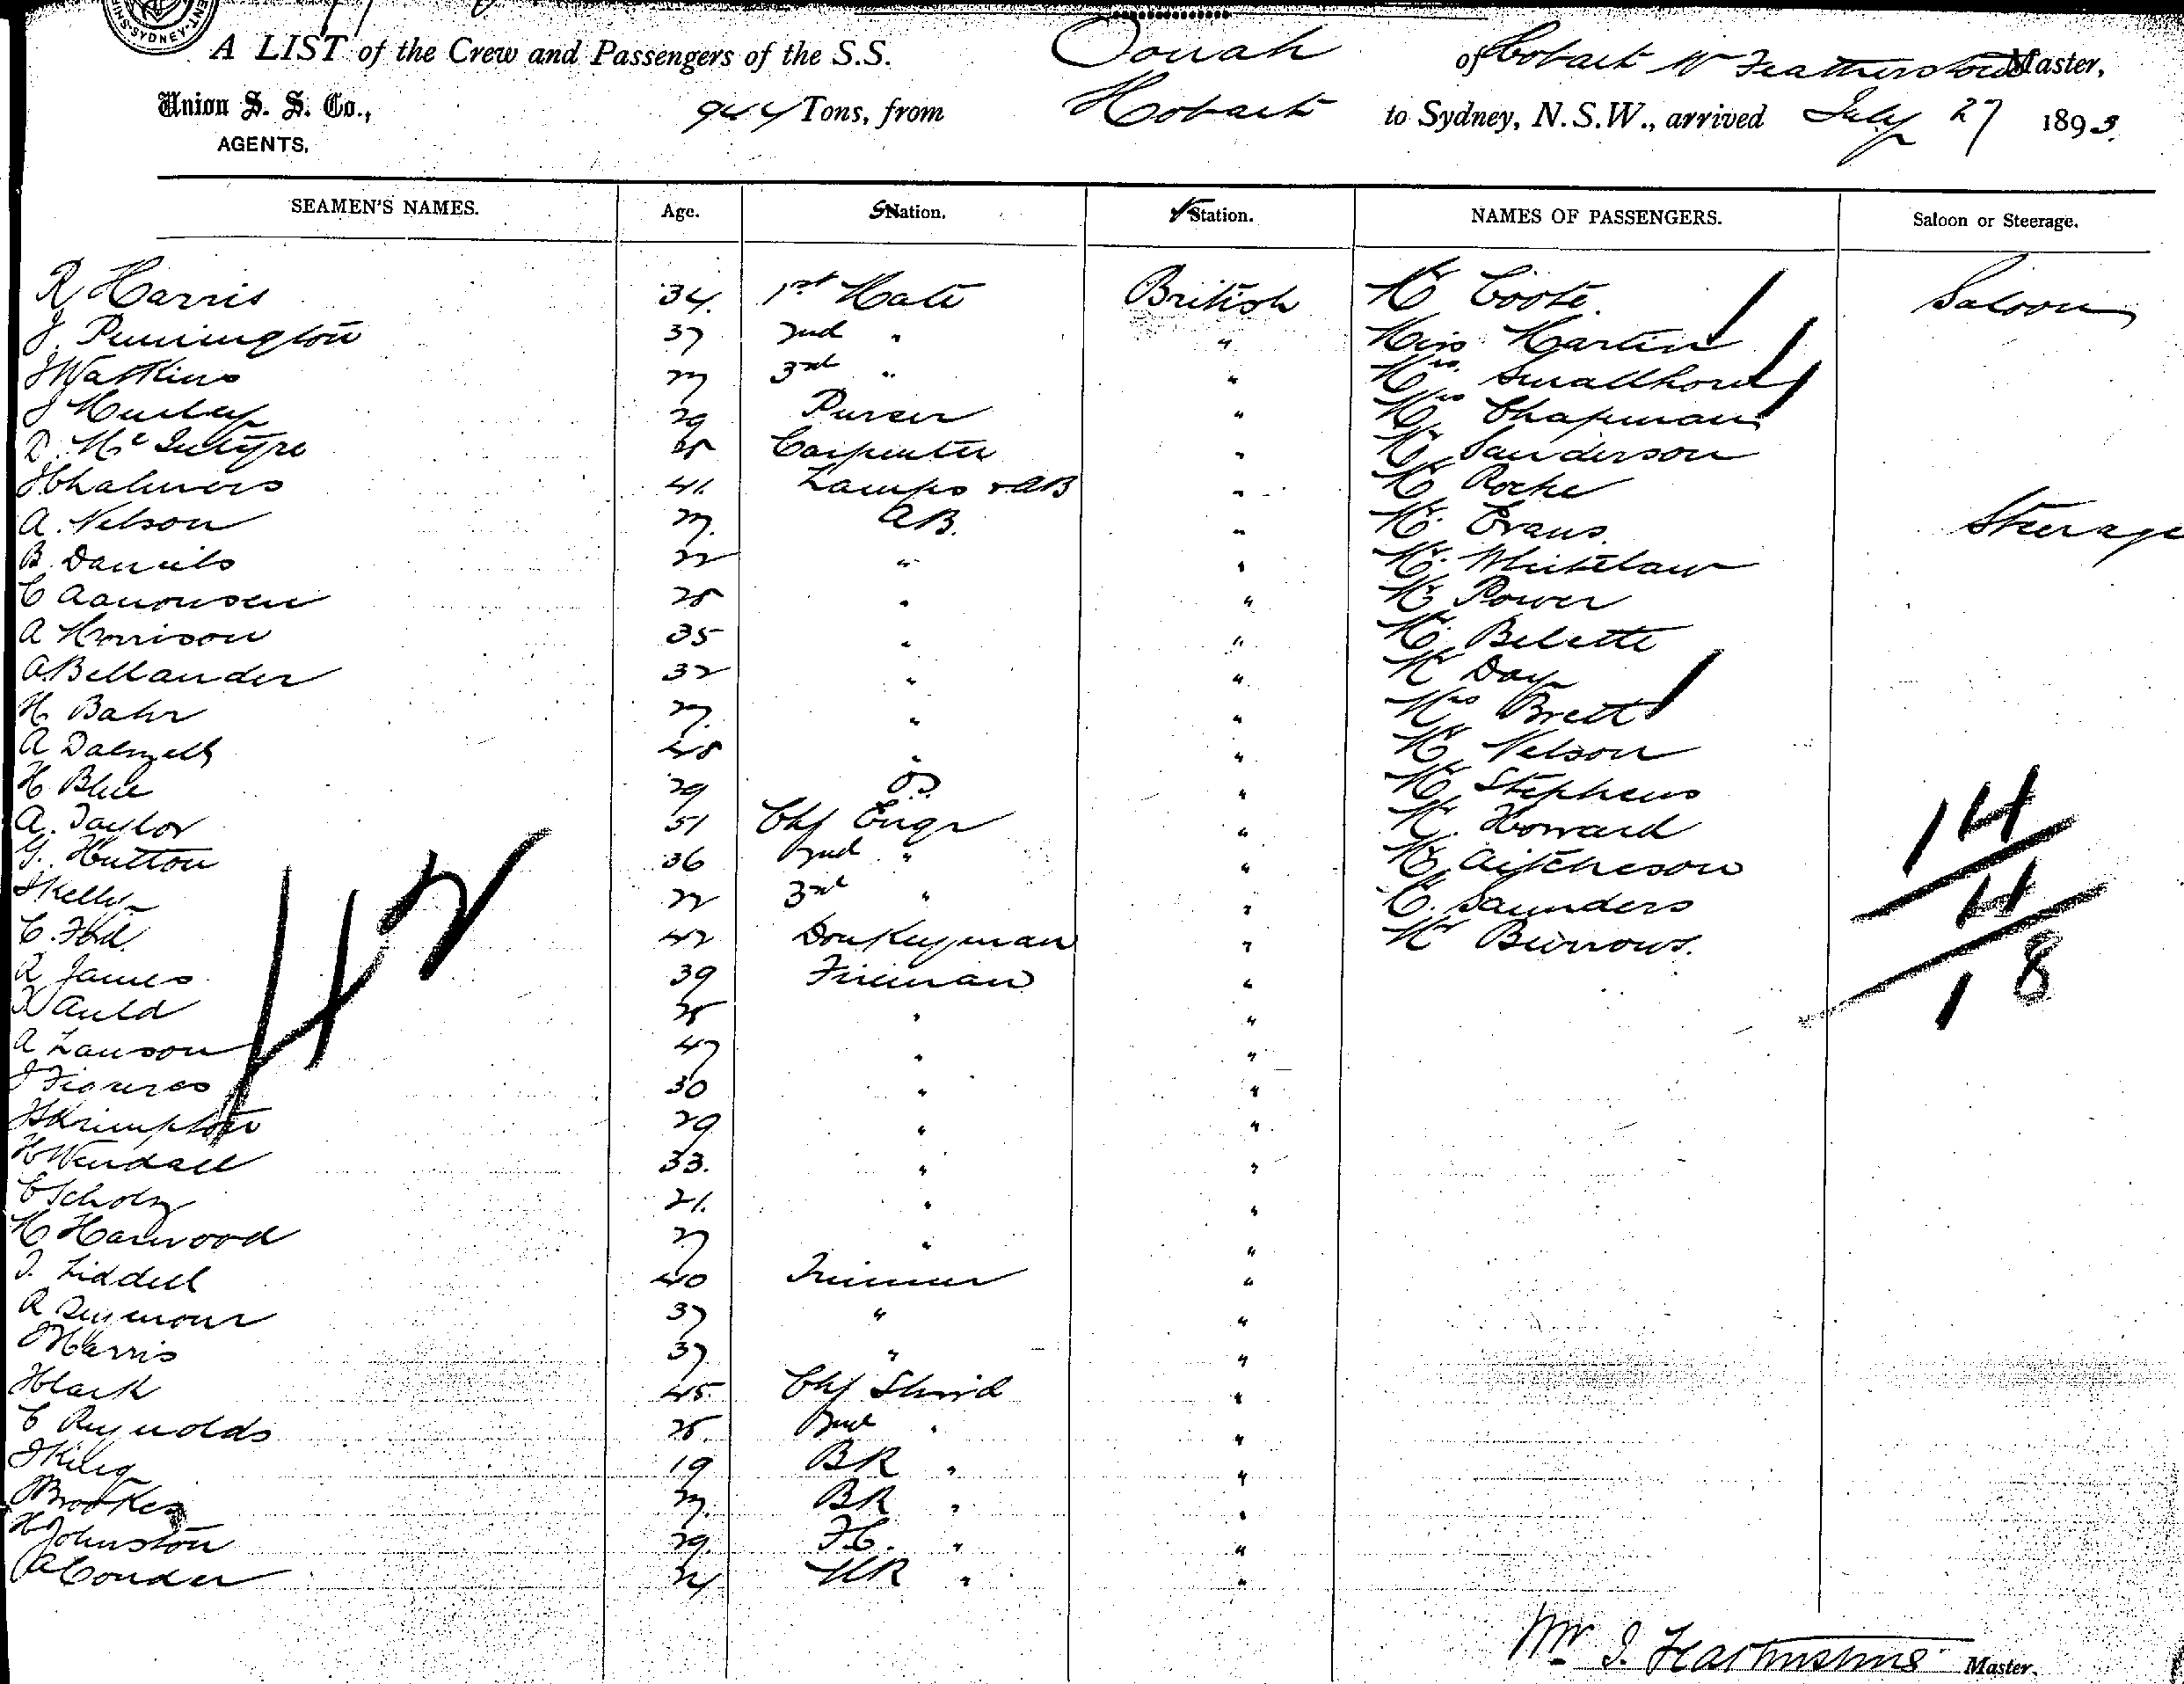 SYDNEY
A LIST of the Crew and Passengers of the S.S. Oonah of Hobart W Featherstone Master,
Union S. S. Co., 944 Tons, from Hobart to Sydney, N.S.W., arrived July 27 1893.
AGENTS,
SEAMEN'S NAMES. Age. Nation. Station. NAMES OF PASSENGERS. Saloon or Steerage.
R Harris 34. 1st Mate British Mr Coote. Saloon
J. Pennington 37 2nd " " Miss Martin
J Watkins 27 3rd " " Mrs. Smallhorn
J Hurley 29 Purser " Mrs Chapman
D. McIntyre 25 Carpenter " Mr Sanderson
J Chalmers 41. Lamps & AB " Mr Roche
A. Nelson 27. AB. " Mr. Evans. Steerage
B. Daniels 22 " " Mr. Whitelaw
C Aanonsen 25 " " Mr Power
A Morrison 35 " " Mr. Belette
A. Bellander 32 " " Mr Day
H. Bahr 27. " " Mrs Brett
A Dalzell 48 " " Mr Nelson
H. Blue 29 O.S. " Mr Stephens
A. Taylor 51 Chf Engr " Mr. Howard 14
G. Hutton 36 2nd " " Mr Aitcheson
J Kelly 22 3rd " " C. Saunders 4
C. Ford 42 Donkeyman " Mr Burrows. 18
R James 39 Fireman "
Auld 25 " "
42
A Lawson 47 " "
J Figures 30 " "
J Skrimpton 29 " "
H Wendall 33. " "
C Scholz 21. " "
H Harwood 27 " "
T. Liddell 40 Trimmer "
R Seymour 37 " "
J Harris 37 " "
J Clark 45 Chf Stwd "
C Reynolds 25. 2nd " "
J Kiley 19 BR " "
Brookes 27. BR " "
H Johnston 29. F.C. " "
A Conder 24 "
Wm J. Featherstone Master.